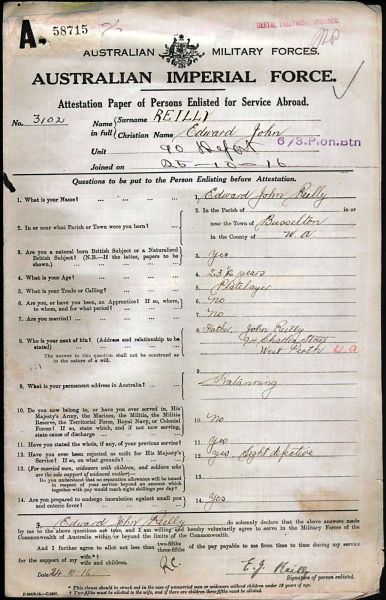 A. 58715
DENTAL TREATMENT
AUSTRALIAN MILITARY FORCES.
AUSTRALIAN IMPERIAL FORCE.
Attestation Paper of Persons Enlisted for Service Abroad.
No. 3102
Name in full
Surname REILLY
Christian Name Edward John
Unit 90 Depot 6/3.Pion.Btn
Joined on 26-10-16
Questions to be put to the Person Enlisting before Attestation.
1. What is your Name? 1. Edward John Reilly
2. In or near what Parish or Town were you born? 2. In the Parish of in or
near the Town of Busselton
in the County of W.A
3. Are you a natural born British Subject or a Naturalized 3. Yes
British Subject? (N.B.—If the latter, papers to be
shown.)
4. What is your Age? 4. 23 years
5. What is your Trade or Calling? 5. Platelayer
6. Are you, or have you been, an Apprentice? If so, where, 6. No
to whom, and for what period?
7. Are you married? 7. No
8. Who is your next of kin? (Address and relationship to be 8. Father John Reilly
stated) Street
West Perth W.A
The answer to this question shall not be construed as
in the nature of a will.
9. What is your permanent address in Australia? 9. Katanning
10. Do you now belong to, or have you ever served in, His 10. No
Majesty's Army, the Marines, the Militia, the Militia
Reserve, the Territorial Force, Royal Navy, or Colonial
Forces? If so, state which, and if not now serving,
state cause of discharge
11. Have you stated the whole, if any, of your previous service? 11. yes
12. Have you ever been rejected as unfit for His Majesty's 12. yes Sight defective
Service? If so, on what grounds?
13. (For married men, widowers with children, and soldiers who 13.
are the sole support of widowed mother)—
Do you understand that no separation allowance will be issued
in respect of your service beyond an amount which
together with pay would reach eight shillings per day?
14. Are you prepared to undergo inoculation against small pox 14. Yes
and enteric fever?
I, Edward John Reilly do solemnly declare that the above answers made
by me to the above questions are true, and I am willing and hereby voluntarily agree to serve in the Military Forces of the
Commonwealth of Australia within or beyond the limits of the Commonwealth.
And I further agree to allot not less than two-fifths three-fifths of the pay payable to me from time to time during my service
for the support of my wife wife and children
Date 24.10.16 R.C. E. J. Reilly
Signature of person enlisted.
* This clause should be struck out in the case of unmarried men or widowers without children under 18 years of age.